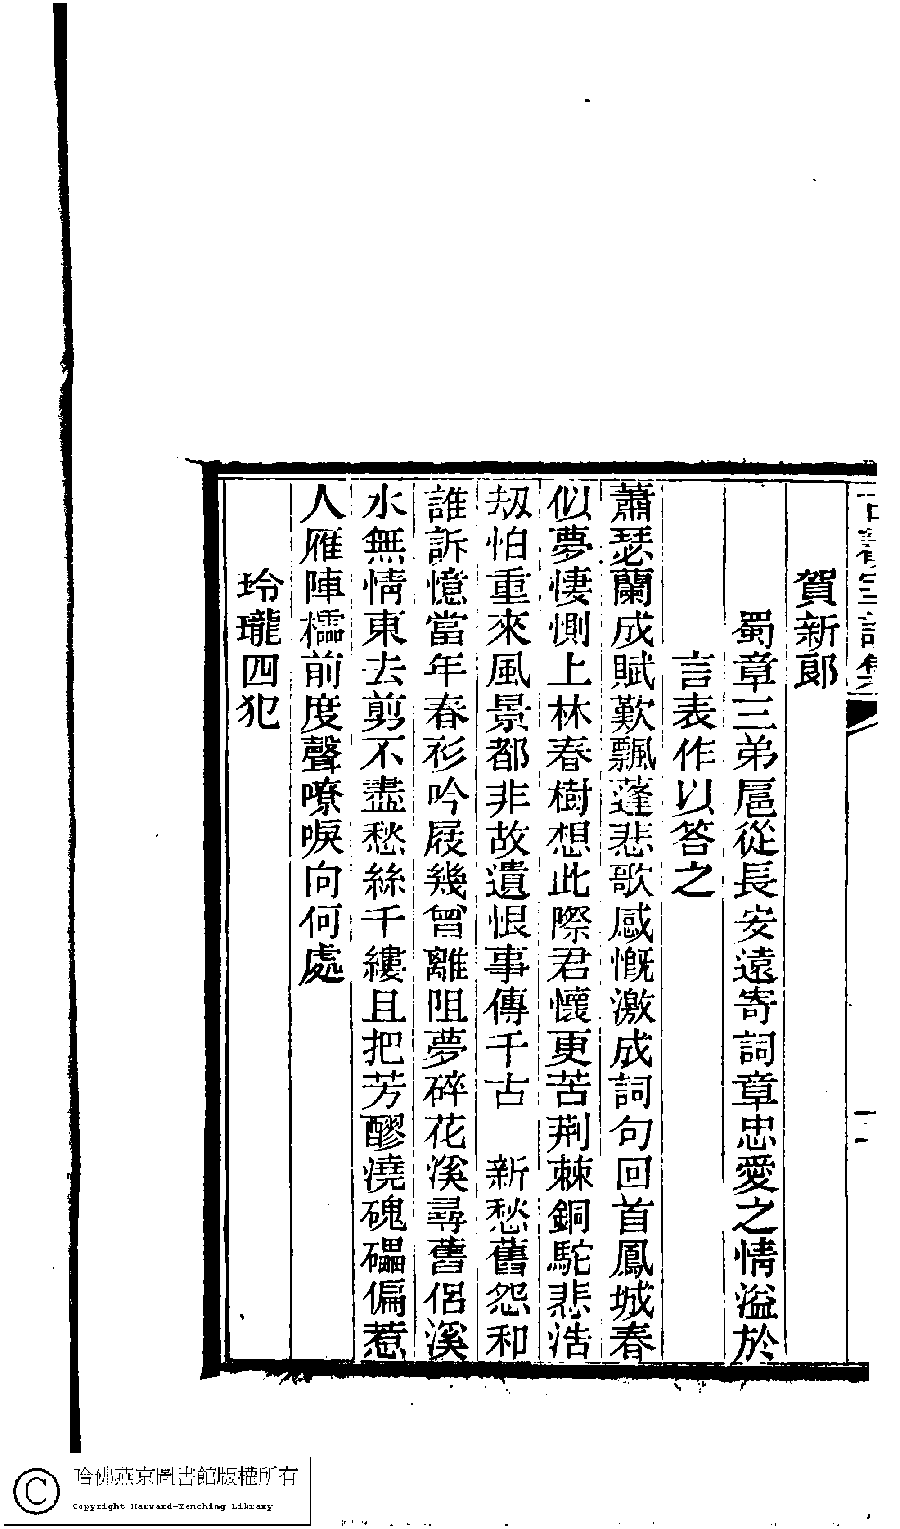 賀新郎
蜀章三弟扈從長安遠寄詞章忠愛之情溢於
言表作以答之
蕭瑟蘭成賦歎飄蓬悲歌感慨激成詞句回首鳳城春
似夢悽惻上林春樹想此際君懷更苦荆棘銅駝悲浩
刼怕重來風景都非故遺恨事傳千古　新愁舊怨和
誰訴憶當年春衫吟屐幾曾離阻夢碎花溪尋舊侶溪
水無情東去剪不盡愁絲千縷且把芳醪澆磈礧偏惹
人雁陣櫺前度聲嘹唳向何處
玲瓏四犯
哈佛燕京圖書館版權所有
Copyright Harvard-Yenching Library